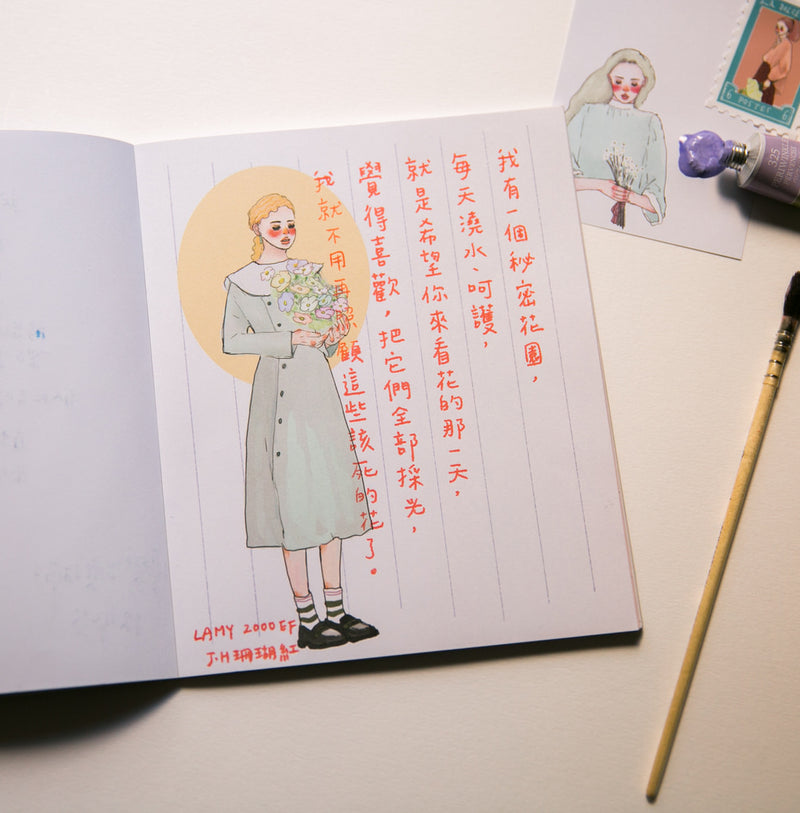 我有一個秘密花園，
每天澆水、呵護，
就是希望你來看花的那一天，
覺得喜歡，把它們全部採光，
我就不用再照顧這些該死的花了。
LAMY 2000 EF
J.H珊瑚紅
325